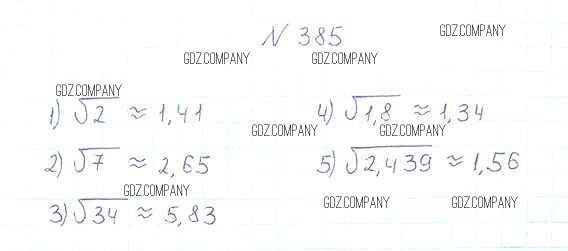 N 385
GDZ.COMPANY
GDZ.COMPANY GDZ.COMPANY
GDZ.COMPANY
1) √2 ≈ 1,41
4) √1,8 ≈ 1,34
GDZ.COMPANY GDZ.COMPANY
2) √7 ≈ 2,65
5) √2,439 ≈ 1,56
GDZ.COMPANY
3) √34 ≈ 5,83
GDZ.COMPANY GDZ.COMPANY